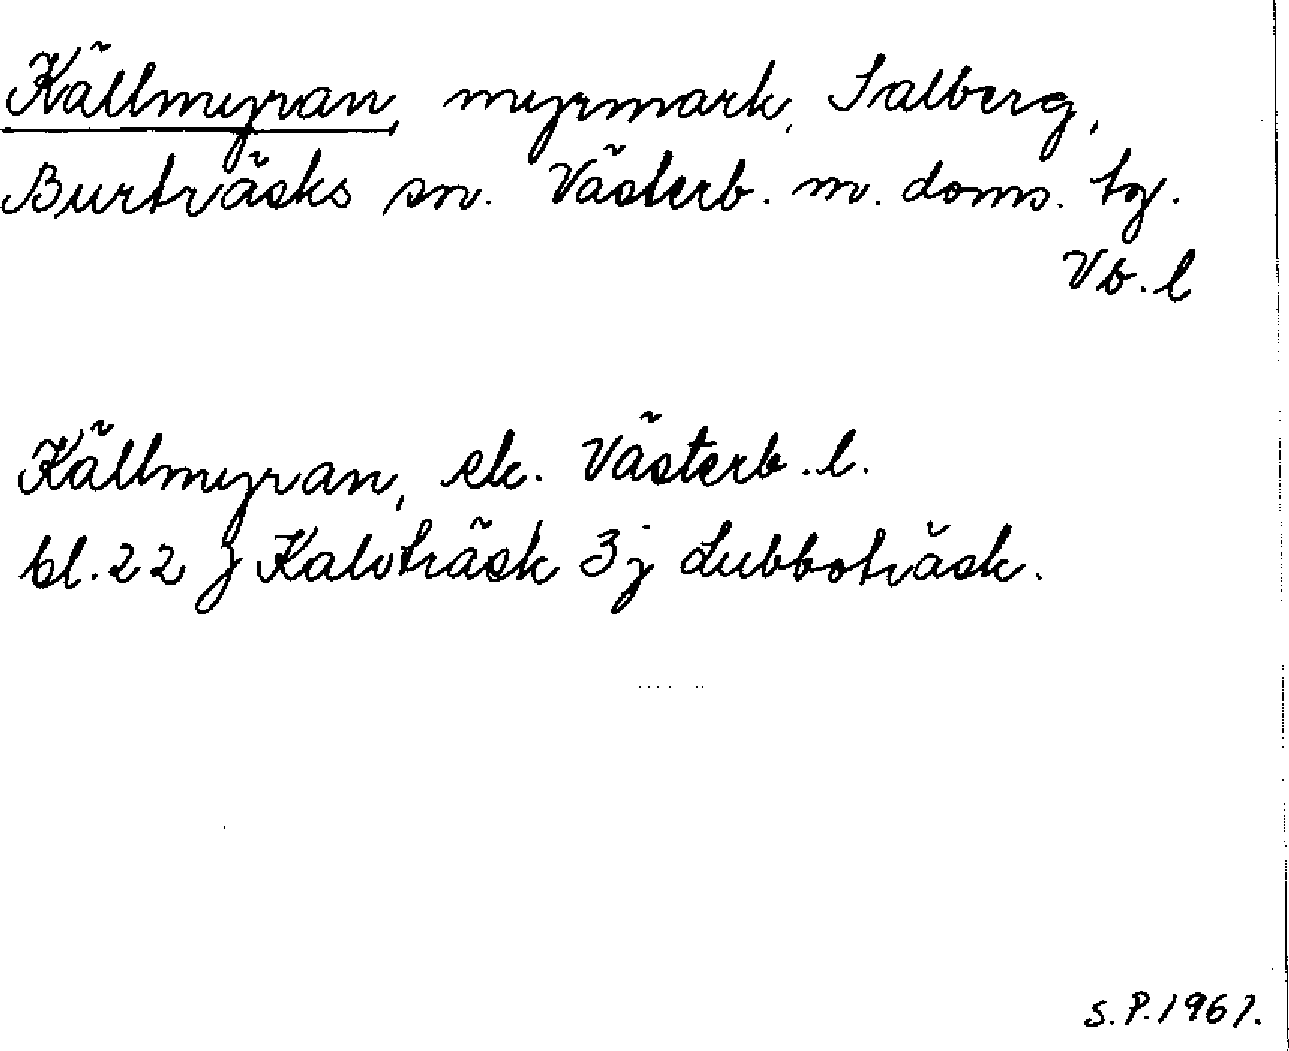 Källmyran, myrmark, Salberg,
Burträsks sn. Västerb. m. doms. tg.
Vb. l
Källmyran, ek. Västerb. l.
bl. 22 J Kalvträsk 3 j Lubboträsk.
S. P. 1961.